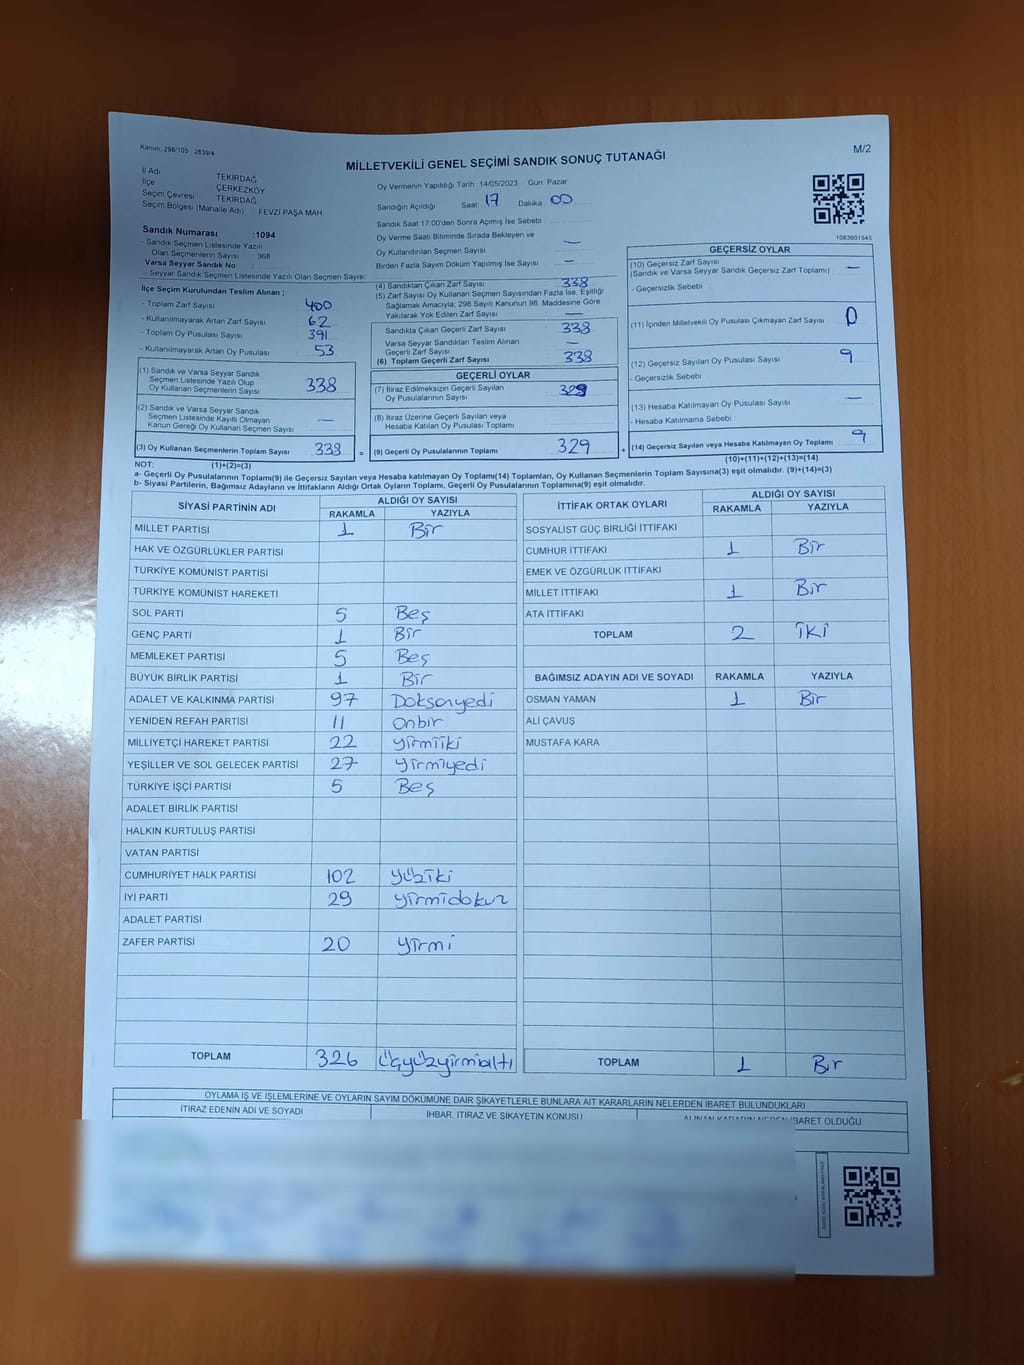 Kanun: 298/105 , 2839/4
MİLLETVEKİLİ GENEL SEÇİMİ SANDIK SONUÇ TUTANAĞI
M/2
İl Adı TEKİRDAĞ
İlçe ÇERKEZKÖY
Seçim Çevresi TEKİRDAĞ
Seçim Bölgesi (Mahalle Adı) FEVZİ PAŞA MAH
Sandık Numarası :1094
- Sandık Seçmen Listesinde Yazılı
Olan Seçmenlerin Sayısı : 368
Varsa Seyyar Sandık No :
- Seyyar Sandık Seçmen Listesinde Yazılı Olan Seçmen Sayısı:
Oy Vermenin Yapıldığı Tarih :14/05/2023 Gün: Pazar
Sandığın Açıldığı Saat: 17 Dakika 00
Sandık Saat 17:00'den Sonra Açımış İse Sebebi :
Oy Verme Saati Bitiminde Sırada Bekleyen ve
Oy Kullandırılan Seçmen Sayısı : —
Birden Fazla Sayım Döküm Yapılmış İse Sayısı : —
1083601545
İlçe Seçim Kurulundan Teslim Alınan ;
- Toplam Zarf Sayısı : 400
- Kullanılmayarak Artan Zarf Sayısı : 62
- Toplam Oy Pusulası Sayısı : 391
- Kullanılmayarak Artan Oy Pusulası : 53
(1) Sandık ve Varsa Seyyar Sandık
Seçmen Listesinde Yazılı Olup
Oy Kullanan Seçmenlerin Sayısı : 338
(2) Sandık ve Varsa Seyyar Sandık
Seçmen Listesinde Kayıtlı Olmayan
Kanun Gereği Oy Kullanan Seçmen Sayısı : —
(3) Oy Kullanan Seçmenlerin Toplam Sayısı : 338 =
(4) Sandıktan Çıkan Zarf Sayısı : 338
(5) Zarf Sayısı Oy Kullanan Seçmen Sayısından Fazla İse, Eşitliği
Sağlamak Amacıyla; 298 Sayılı Kanunun 98. Maddesine Göre
Yakılarak Yok Edilen Zarf Sayısı : —
Sandıkta Çıkan Geçerli Zarf Sayısı : 338
Varsa Seyyar Sandıktan Teslim Alınan
Geçerli Zarf Sayısı : —
(6) Toplam Geçerli Zarf Sayısı : 338
GEÇERLİ OYLAR
(7) İtiraz Edilmeksizin Geçerli Sayılan
Oy Pusulalarının Sayısı : 329
(8) İtiraz Üzerine Geçerli Sayılan veya
Hesaba Katılan Oy Pusulası Toplamı :
(9) Geçerli Oy Pusulalarının Toplamı : 329 +
GEÇERSİZ OYLAR
(10) Geçersiz Zarf Sayısı
(Sandık ve Varsa Seyyar Sandık Geçersiz Zarf Toplamı) : —
- Geçersizlik Sebebi :
(11) İçinden Milletvekili Oy Pusulası Çıkmayan Zarf Sayısı : 0
(12) Geçersiz Sayılan Oy Pusulası Sayısı : 9
- Geçersizlik Sebebi :
(13) Hesaba Katılmayan Oy Pusulası Sayısı : —
- Hesaba Katılmama Sebebi :
(14) Geçersiz Sayılan veya Hesaba Katılmayan Oy Toplamı : 9
NOT: (1)+(2)=(3) (10)+(11)+(12)+(13)=(14)
a- Geçerli Oy Pusulalarının Toplamı(9) ile Geçersiz Sayılan veya Hesaba katılmayan Oy Toplamı(14) Toplamları, Oy Kullanan Seçmenlerin Toplam Sayısına(3) eşit olmalıdır. (9)+(14)=(3)
b- Siyasi Partilerin, Bağımsız Adayların ve İttifakların Aldığı Ortak Oyların Toplamı, Geçerli Oy Pusulalarının Toplamına(9) eşit olmalıdır.
SİYASİ PARTİNİN ADI ALDIĞI OY SAYISI
RAKAMLA YAZIYLA
MİLLET PARTİSİ 1 Bir
HAK VE ÖZGÜRLÜKLER PARTİSİ
TÜRKİYE KOMÜNİST PARTİSİ
TÜRKİYE KOMÜNİST HAREKETİ
SOL PARTİ 5 Beş
GENÇ PARTİ 1 Bir
MEMLEKET PARTİSİ 5 Beş
BÜYÜK BİRLİK PARTİSİ 1 Bir
ADALET VE KALKINMA PARTİSİ 97 Doksanyedi
YENİDEN REFAH PARTİSİ 11 onbir
MİLLİYETÇİ HAREKET PARTİSİ 22 yirmiiki
YEŞİLLER VE SOL GELECEK PARTİSİ 27 yirmiyedi
TÜRKİYE İŞÇİ PARTİSİ 5 Beş
ADALET BİRLİK PARTİSİ
HALKIN KURTULUŞ PARTİSİ
VATAN PARTİSİ
CUMHURİYET HALK PARTİSİ 102 yüziki
İYİ PARTİ 29 yirmidokuz
ADALET PARTİSİ
ZAFER PARTİSİ 20 yirmi
TOPLAM 326 üçyüzyirmialtı
İTTİFAK ORTAK OYLARI ALDIĞI OY SAYISI
RAKAMLA YAZIYLA
SOSYALİST GÜÇ BİRLİĞİ İTTİFAKI
CUMHUR İTTİFAKI 1 Bir
EMEK VE ÖZGÜRLÜK İTTİFAKI
MİLLET İTTİFAKI 1 Bir
ATA İTTİFAKI
TOPLAM 2 iki
BAĞIMSIZ ADAYIN ADI VE SOYADI RAKAMLA YAZIYLA
OSMAN YAMAN 1 Bir
ALİ ÇAVUŞ
MUSTAFA KARA
TOPLAM 1 Bir
OYLAMA İŞ VE İŞLEMLERİNE VE OYLARIN SAYIM DÖKÜMÜNE DAİR ŞİKAYETLERLE BUNLARA AİT KARARLARIN NELERDEN İBARET BULUNDUKLARI
İTİRAZ EDENİN ADI VE SOYADI İHBAR, İTİRAZ VE ŞİKAYETİN KONUSU ALINAN KARARIN NEDEN İBARET OLDUĞU